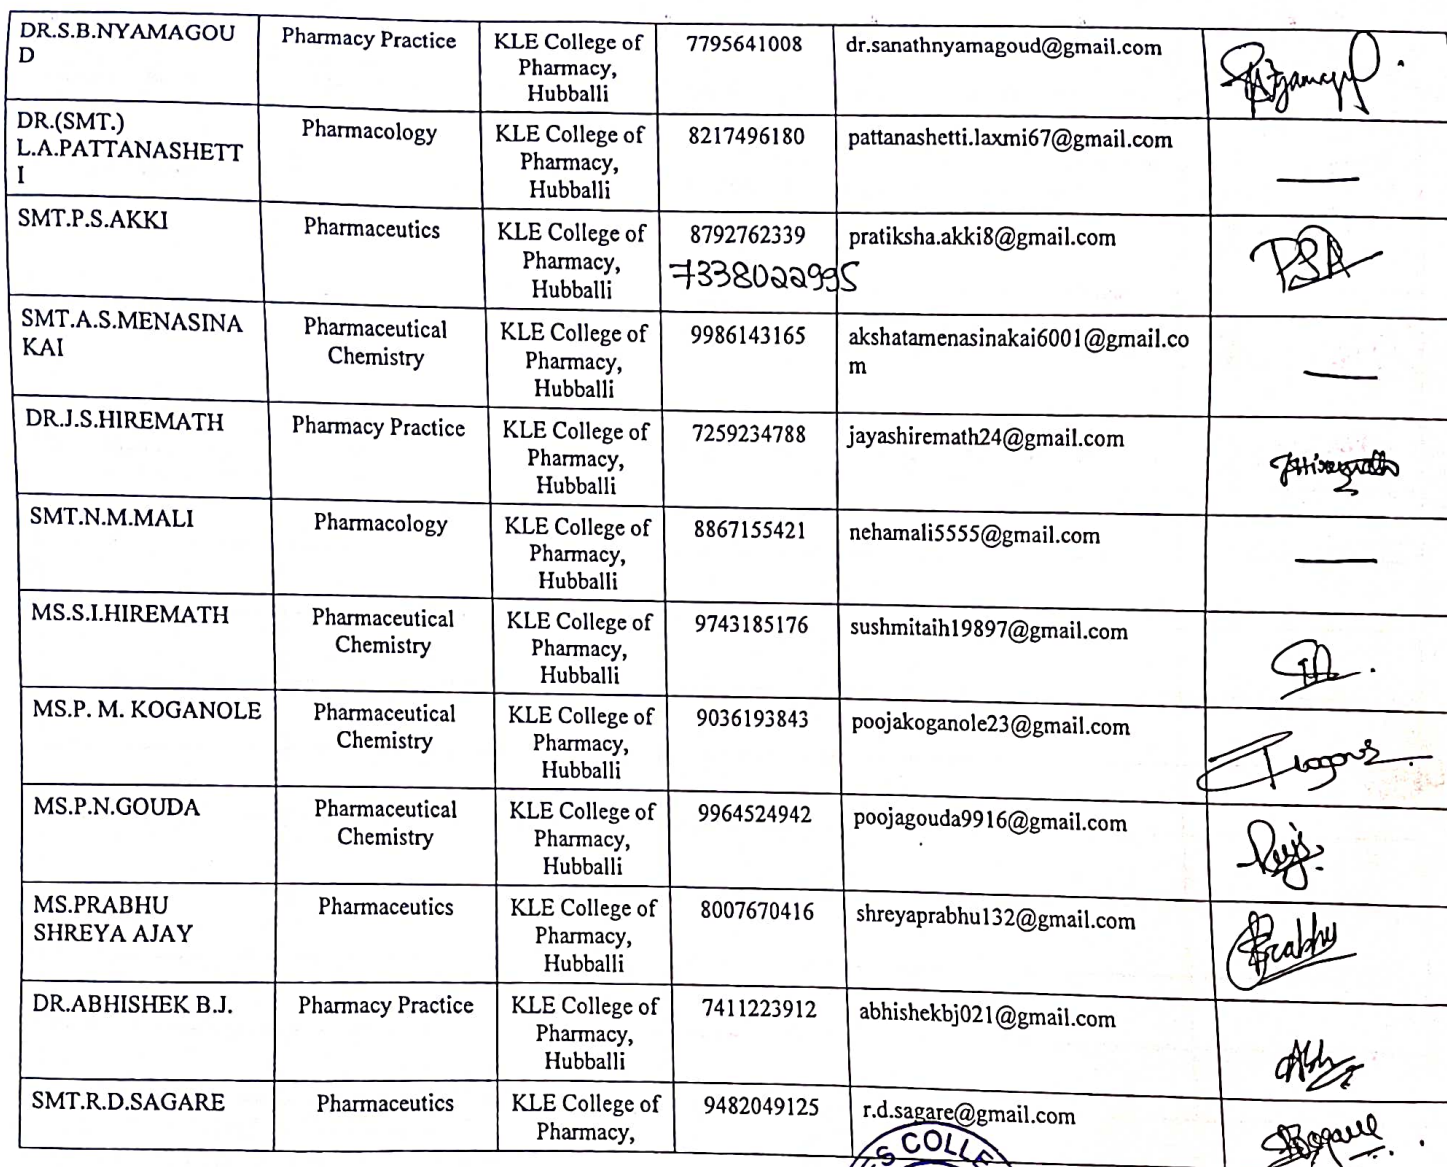 DR.S.B.NYAMAGOU
D
Pharmacy Practice
KLE College of
Pharmacy,
Hubballi
7795641008
dr.sanathnyamagoud@gmail.com
DR.(SMT.)
L.A.PATTANASHETT
I
Pharmacology
KLE College of
Pharmacy,
Hubballi
8217496180
pattanashetti.laxmi67@gmail.com
SMT.P.S.AKKI
Pharmaceutics
KLE College of
Pharmacy,
Hubballi
8792762339
7338022995
pratiksha.akki8@gmail.com
PSA
SMT.A.S.MENASINA
KAI
Pharmaceutical
Chemistry
KLE College of
Pharmacy,
Hubballi
9986143165
akshatamenasinakai6001@gmail.co
m
DR.J.S.HIREMATH
Pharmacy Practice
KLE College of
Pharmacy,
Hubballi
7259234788
jayashiremath24@gmail.com
SMT.N.M.MALI
Pharmacology
KLE College of
Pharmacy,
Hubballi
8867155421
nehamali5555@gmail.com
MS.S.I.HIREMATH
Pharmaceutical
Chemistry
KLE College of
Pharmacy,
Hubballi
9743185176
sushmitaih19897@gmail.com
MS.P. M. KOGANOLE
Pharmaceutical
Chemistry
KLE College of
Pharmacy,
Hubballi
9036193843
poojakoganole23@gmail.com
MS.P.N.GOUDA
Pharmaceutical
Chemistry
KLE College of
Pharmacy,
Hubballi
9964524942
poojagouda9916@gmail.com
MS.PRABHU
SHREYA AJAY
Pharmaceutics
KLE College of
Pharmacy,
Hubballi
8007670416
shreyaprabhu132@gmail.com
SPrabhu
DR.ABHISHEK B.J.
Pharmacy Practice
KLE College of
Pharmacy,
Hubballi
7411223912
abhishekbj021@gmail.com
SMT.R.D.SAGARE
Pharmaceutics
KLE College of
Pharmacy,
9482049125
r.d.sagare@gmail.com
S COLLE